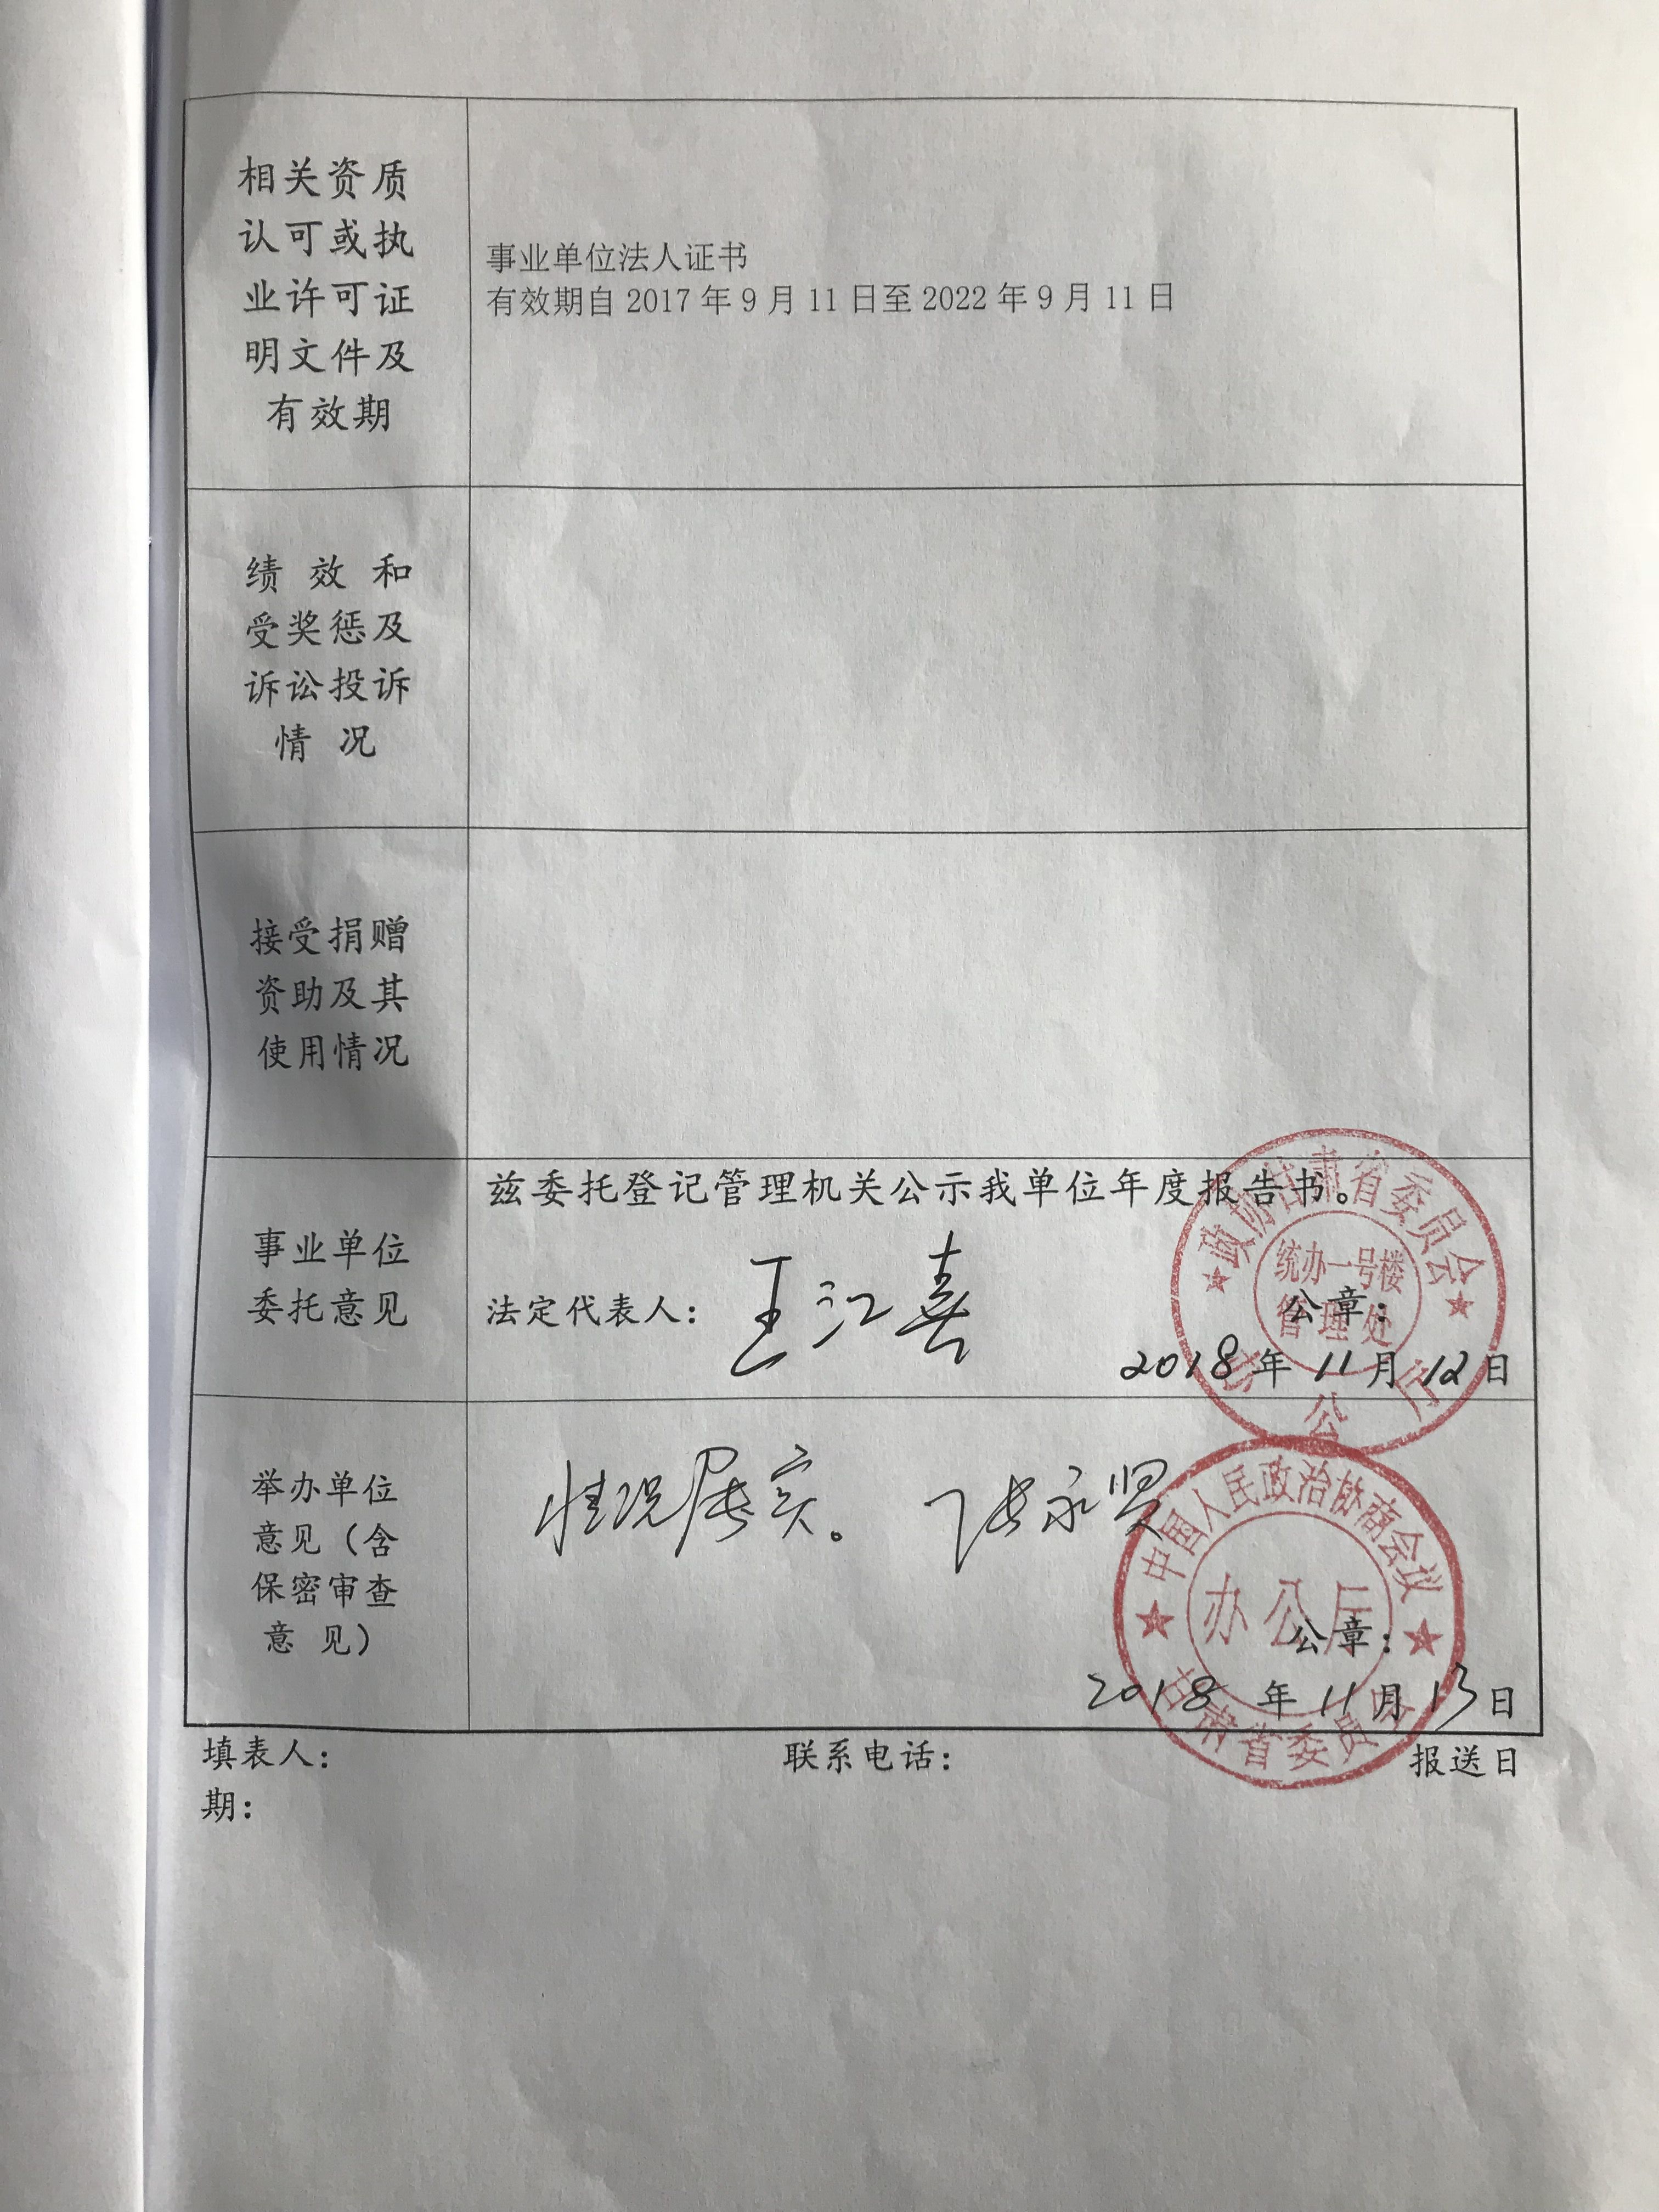 相关资质
认可或执
业许可证
明文件及
有效期
事业单位法人证书
有效期自 2017 年 9 月 11 日至 2022 年 9 月 11 日
绩 效 和
受奖惩及
诉讼投诉
情 况
接受捐赠
资助及其
使用情况
事业单位
委托意见
兹委托登记管理机关公示我单位年度报告书。
法定代表人： 王江喜
公章：
2018 年 11 月 12 日
政协甘肃省委员会
办公厅
统办一号楼
管理处
举办单位
意见（含
保密审查
意 见）
情况属实。 张永贤
公章：
2018 年 11 月 13 日
中国人民政治协商会议
甘肃省委员会
办公厅
填表人： 联系电话： 报送日
期：